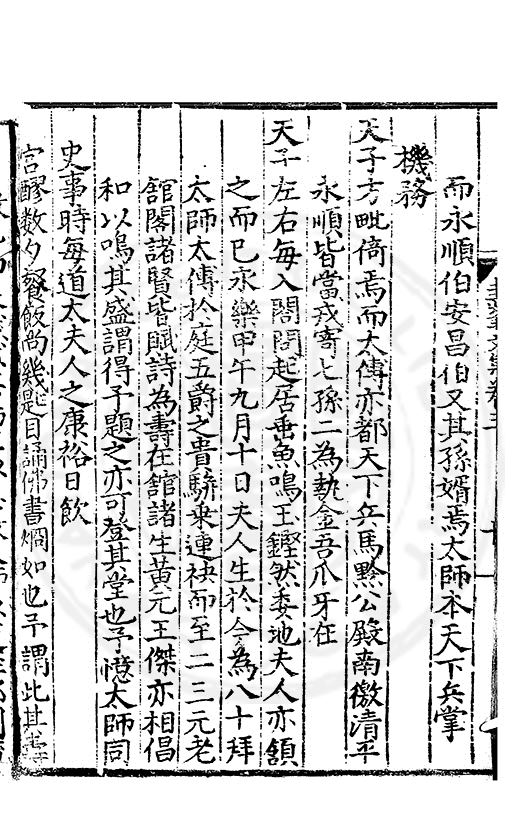 而永順伯安昌伯又其孫婿焉太師本天下兵掌
機務
天子方毗倚焉而太傅亦都天下兵馬黔公殿南徼清平
永順皆當戎寄七孫二為執金吾爪牙在
天子左右每入閤問起居垂魚鳴玉鏗然委地夫人亦頷
之而已永樂甲午九月十日夫人生於今為八十拜
太師太傅於庭五爵之貴驂乘連袂而至二三元老
舘閣諸賢皆賦詩為壽在舘諸生黃元王傑亦相倡
和以鳴其盛謂得予題之亦可登其堂也予憶太師同
史事時每道太夫人之康裕日飲
宮醪數夕餐飯尚幾匙目誦佛書烱如也予謂此其壽